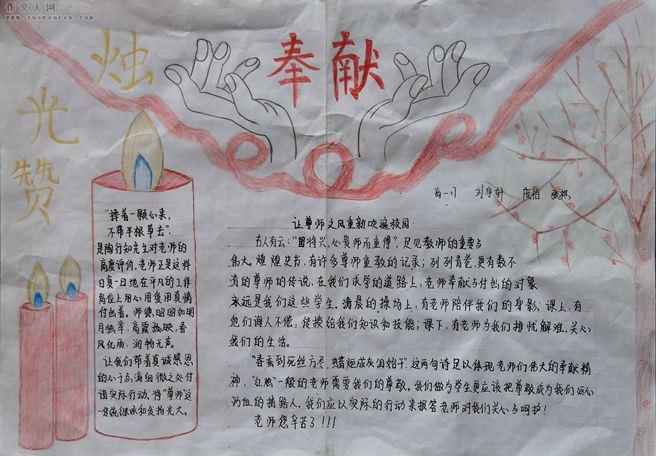 作文人网
www.zuowenren.com
烛
光
赞
奉献
高一
"捧着一颗心来,
不带半根草去"
是陶行知先生对老师的
高度评价,老师正是这样
日复一日地在平凡的工作
岗位上用心用爱用真情
付出着。师德,
春
风化雨,润物无声。
让我们带着真诚感恩
的心于点滴细微之处付
诸实际行动,将"尊师"这
一传统继承和发扬光大。
让尊师之风重新吹遍校园
古人有云:"国将兴,心贵师而重傅",足见教师的重要与
伟大,煌煌史书,有许多尊师重教的记录;
的尊师的传说,在我们求学的道路上,老师奉献与付出的对象
永远是我们这些学生,清晨的操场上,有老师陪伴我们的身影;课上,有
他们诲人不倦,传授给我们知识和技能;课下,有老师为我们排忧解难,关心
我们的生活。
"春蚕到死丝方尽,蜡炬成灰泪始干"这两句诗足以体现老师们伟大的奉献精
神,"红烛"一般的老师需要我们的尊敬,我们做为学生更应该把尊敬成为我们
的 我们应以实际的行动来报答老师对我们关心与呵护!
老师您辛苦了!!!